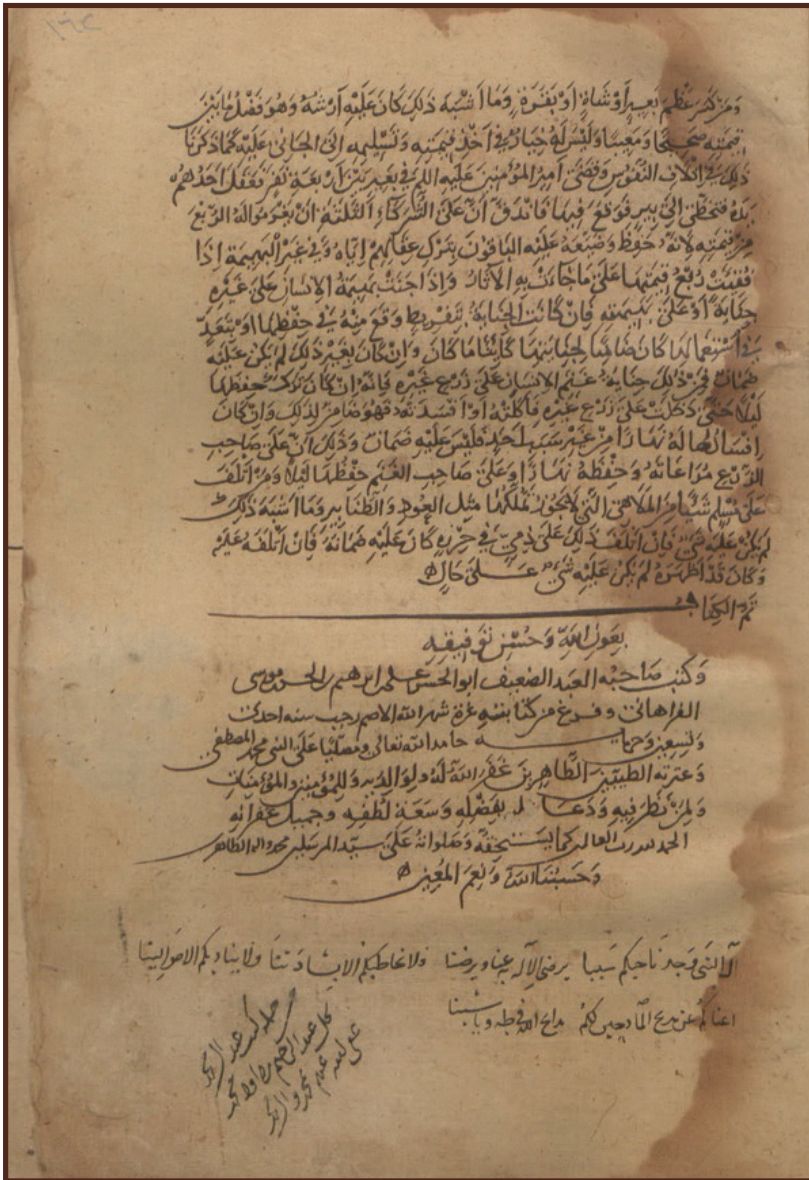 ١٦٢
ومن كسر عظم بعير أو شاة أو بقرة وما أشبه ذلك كان عليه أرشه وهو فضل ما بين
قيمته صحيحا ومعيبا وليس له خيار في أخذ قيمته وتسليمه إلى الجاني عليه كما ذكرنا
ذلك في اتلاف النفوس وقضى أمير المؤمنين عليه السلم في بعير بين أربعة نفر فعقل أحدهم
يده فتخطى إلى بير فوقع فيها فاندق أن على الشركاء الثلثة أن يغرموا له الربع
من قيمته لأنه حفظ وضيعه عليه الباقون بترك عقالهم إياه وفي عين البهيمة إذا
فقئت ربع قيمتها على ما جاءت به الآثار وإذا جنت بهيمة الإنسان على غيره
جناية أو على بهيمته فإن كانت الجناية بتفريط وقع منه في حفظها أو بتعد
في استعمالها كان ضامنا لجنايتها كائنا ما كان وإن كان بغير ذلك لم يكن عليه
ضمان فمن ذلك جناية غنم الإنسان على زرع غيره فإنه إن كان ترك حفظها
ليلا حتى دخلت على زرع غيره فأكلته أو أفسدته فهو ضامن لذلك وإن كان
إفسادها له نهارا من غير سبب لأحد فليس عليه ضمان وذلك أن على صاحب
الزرع مراعاته وحفظه نهارا وعلى صاحب الغنم حفظها ليلا ومن أتلف
على مسلم شيئا من الملاهي التي لا يجوز تملكها مثل العود والطنابير وما أشبه ذلك
لم يكن عليه شي فإن أتلف ذلك على ذمي في حرزه كان عليه ضمانه فإن أتلفه عليه
وكان قد أظهره لم يكن عليه شي على حال
تم الكتاب
بعون الله وحسن توفيقه
وكتب صاحبه العبد الضعيف أبو الحسن علي بن إبرهيم بن الحسن بن موسى
الفراهاني وفرغ من كتابته غرة شهر الله الأصم رجب سنة إحدى
وتسعين وخمسمائة حامدا لله تعالى ومصليا على النبي محمد المصطفى
وعترته الطيبين الطاهرين غفر الله له ولوالديه وللمؤمنين والمؤمنات
ولمن نظر فيه ودعا له بفضله وسعة لطفه وجميل غفرانه
الحمد لله رب العالمين كما يستحقه وصلواته على سيد المرسلين محمد وآله الطاهرين
وحسبنا الله ونعم المعين
آل النبي وجدنا حبكم سببا يرضى الإله به عنا ويرضينا فلا نخاطبكم إلا بسادتنا ولا نناديكم إلا موالينا
أغناكم عن مديح المادحين لكم مدايح الله في طه وياسينا